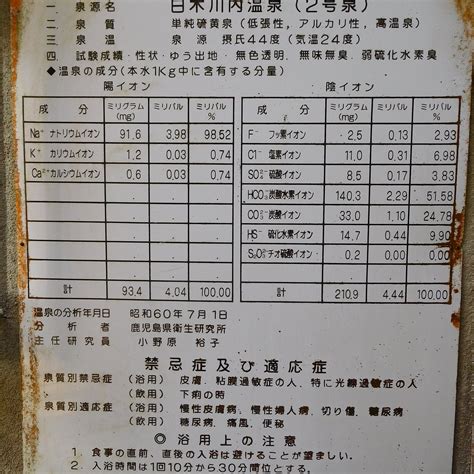 一 温泉名 白木川内温泉(2号泉)
二 泉質 単純硫黄泉(低張性,アルカリ性,高温泉)
三 泉温 泉源 摂氏44度(気温24度)
四 試験成績・性状・ゆう出地・無色透明、無味無臭、弱硫化水素臭
◆温泉の成分(本水1Kg中に含有する分量)
陽イオン
成分 ミリグラム(mg) ミリバル ミリバル%
Na⁺ ナトリウムイオン 91,6 3,98 98,52
K⁺ カリウムイオン 1,2 0,03 0,74
Ca²⁺カルシウムイオン 0,6 0,03 0,74
計 93,4 4,04 100,00
陰イオン
成分 ミリグラム(mg) ミリバル ミリバル%
F⁻ フッ素イオン 2,5 0,13 2,93
Cl⁻ 塩素イオン 11,0 0,31 6,98
SO₄²⁻硫酸イオン 8,5 0,17 3,83
HCO₃⁻炭酸水素イオン 140,3 2,29 51,58
CO₃²⁻炭酸イオン 33,0 1,10 24,78
HS⁻ 硫化水素イオン 14,7 0,44 9,90
S₂O₃²⁻チオ硫酸イオン 0,2 0,00 0,00
計 210,9 4,44 100,00
温泉の分析年月日 昭和60年7月1日
分析者 鹿児島県衛生研究所
主任研究員 小野原 裕子
禁忌症及び適応症
泉質別禁忌症 (浴用) 皮膚、粘膜過敏症の人、特に光線過敏症の人
(飲用) 下痢の時
泉質別適応症 (浴用) 慢性皮膚病、慢性婦人病、切り傷、糖尿病
(飲用) 糖尿病、痛風、便秘
◎浴用上の注意
1.食事の直前、直後の入浴は避けることが望ましい。
2.入浴時間は1回10分から30分間位とする。